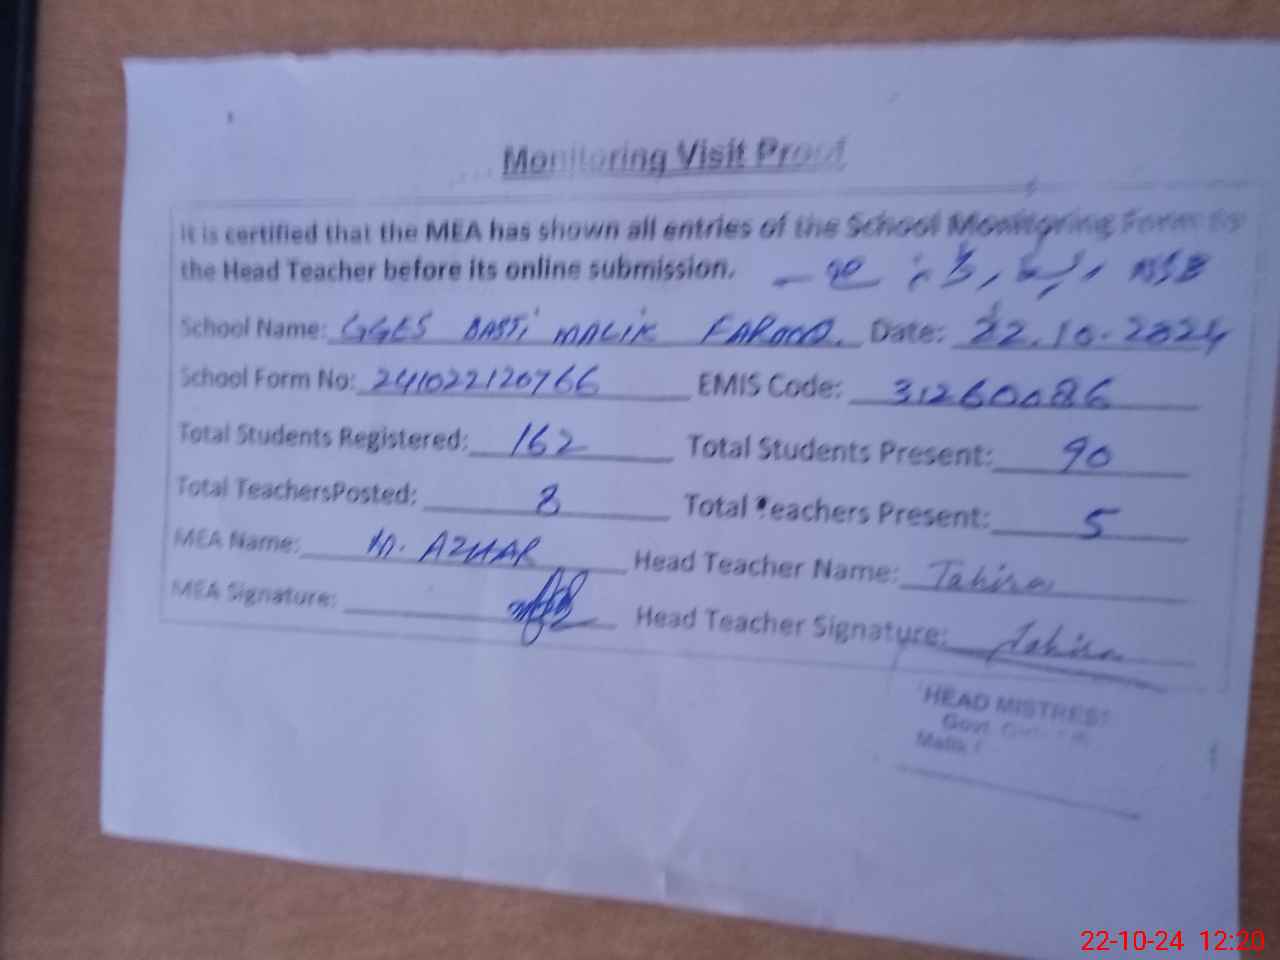 Monitoring Visit Proof
It is certified that the MEA has shown all entries of the School Monitoring Form to
the Head Teacher before its online submission. NSB
School Name: GGES BASTi MALIK FAROOQ. Date: 22.10.2024
School Form No: 241022120766 EMIS Code: 31260086
Total Students Registered: 162 Total Students Present: 90
Total TeachersPosted: 8 Total Teachers Present: 5
MEA Name: M. AZHAR Head Teacher Name: Tahira
MEA Signature: Head Teacher Signature: Tahira
HEAD MISTRESS
Govt. Girls
Malik
22-10-24 12:20